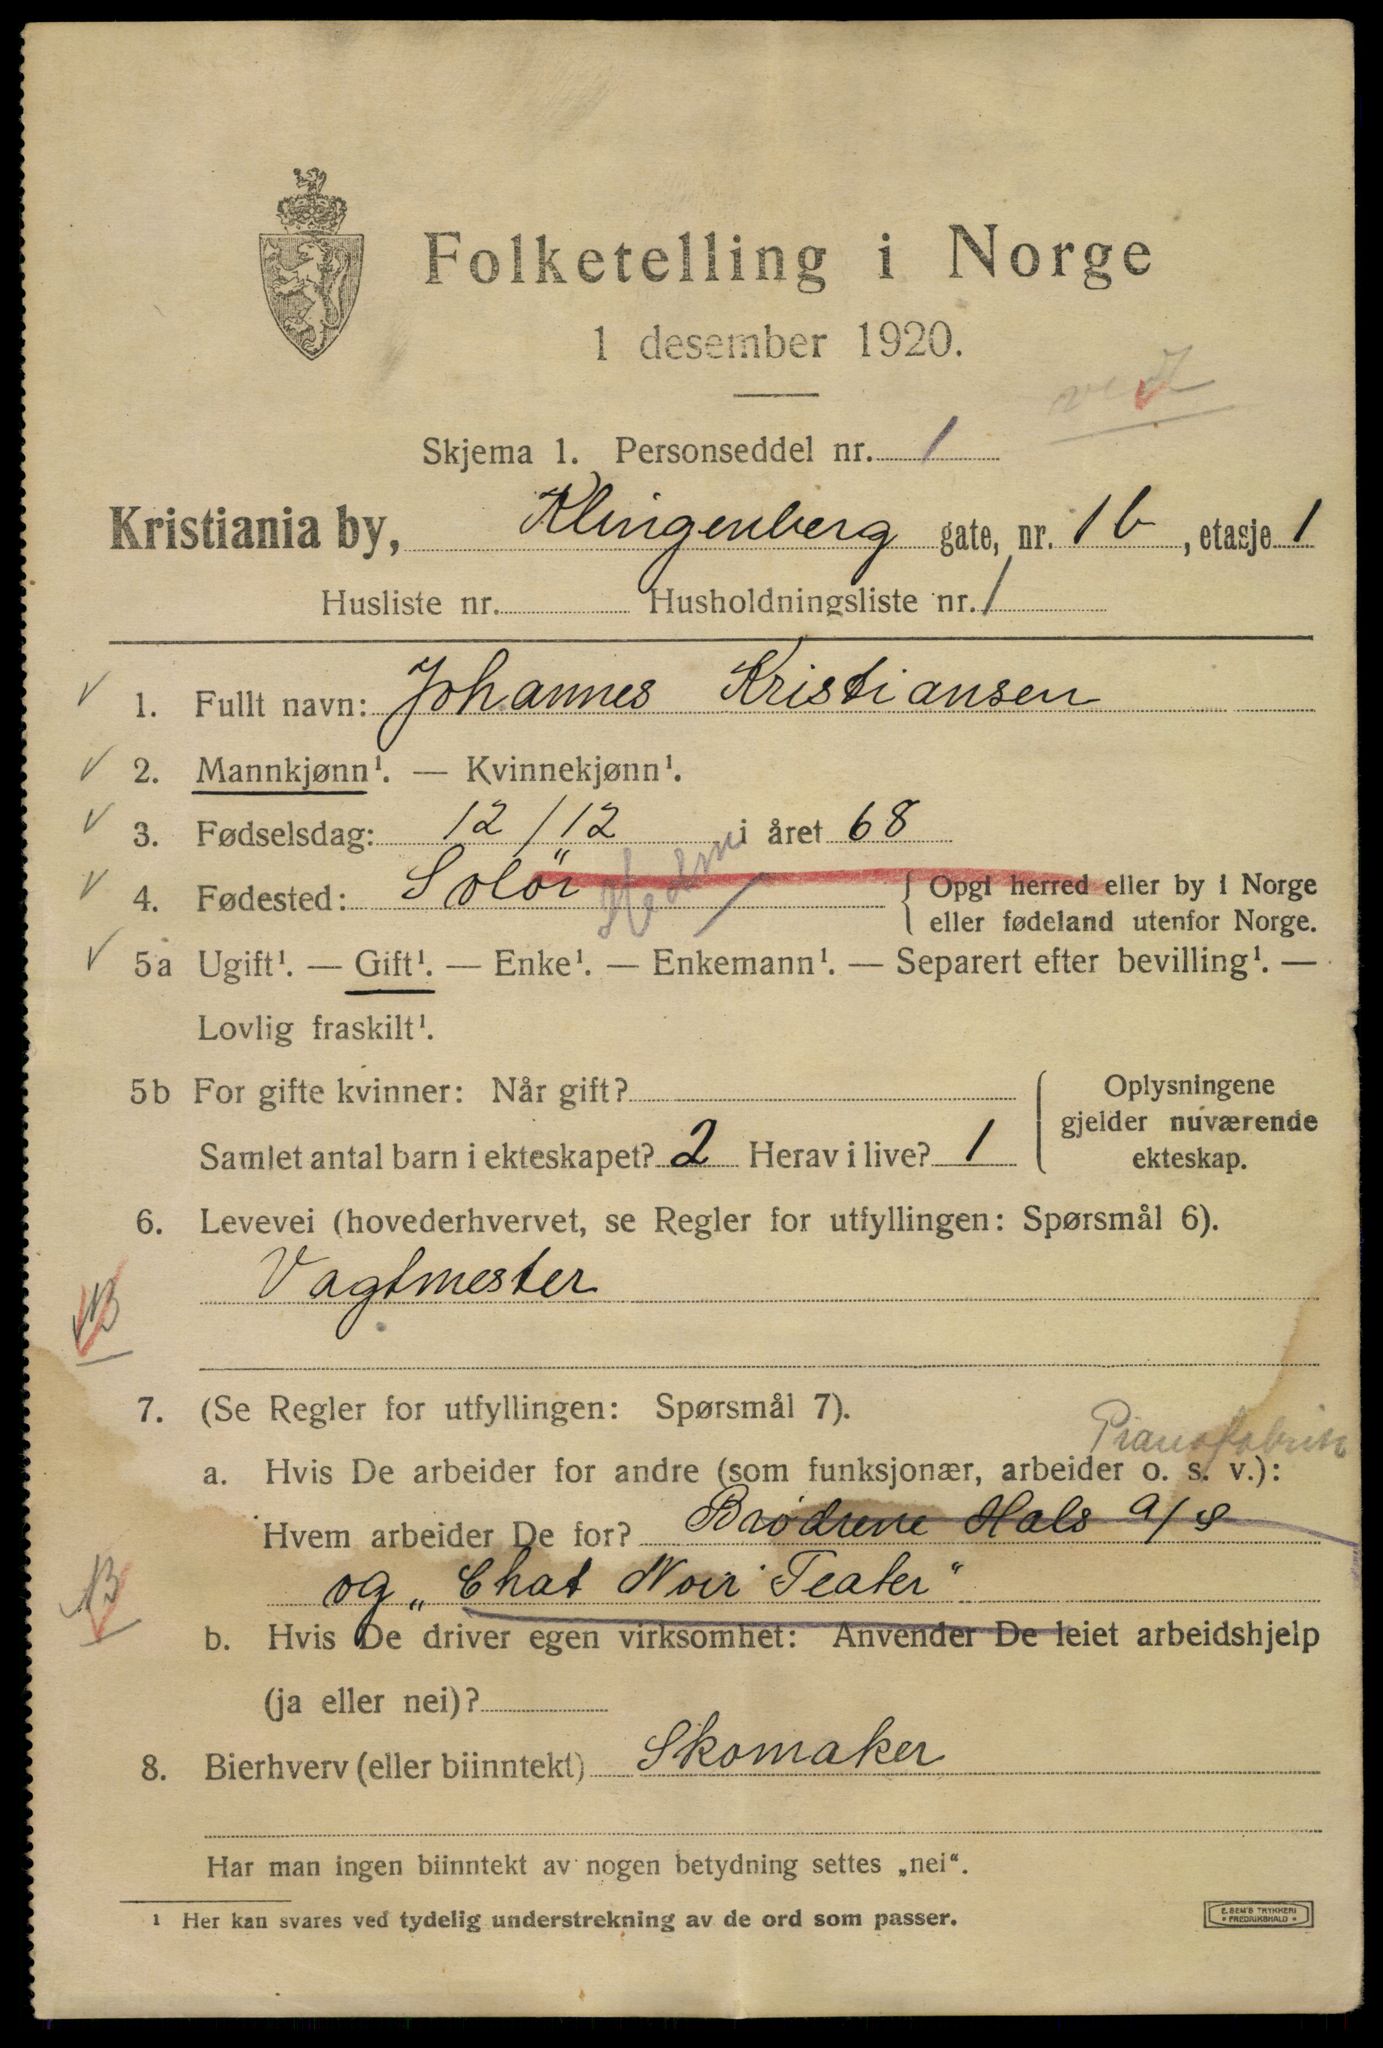 Folketelling i Norge
1 desember 1920.
Skjema 1. Personseddel nr. 1
Kristiania by, Klingenberg gate, nr. 1b, etasje 1
Husliste nr. Husholdningsliste nr. 1
1. Fullt navn: Johannes Kristiansen
2. Mannkjønn¹. — Kvinnekjønn¹.
3. Fødselsdag: 12/12 i året 68
4. Fødested: Solör Hedm { Opgi herred eller by i Norge
eller fødeland utenfor Norge.
5a Ugift¹. — Gift¹. — Enke¹. — Enkemann¹. — Separert efter bevilling¹. —
Lovlig fraskilt¹.
5b For gifte kvinner: Når gift?
Samlet antal barn i ekteskapet? 2 Herav i live? 1
{ Oplysningene
gjelder nuværende
ekteskap.
6. Levevei (hovederhvervet, se Regler for utfyllingen: Spørsmål 6).
Vagtmester
NB
7. (Se Regler for utfyllingen: Spørsmål 7).
Pianofabrik
a. Hvis De arbeider for andre (som funksjonær, arbeider o. s. v.):
Hvem arbeider De for? Brødrene Hals a/s
og „Chat Noir Teater"
NB
b. Hvis De driver egen virksomhet: Anvender De leiet arbeidshjelp
(ja eller nei)?
8. Bierhverv (eller biinntekt) Skomaker
Har man ingen biinntekt av nogen betydning settes „nei“.
¹ Her kan svares ved tydelig understrekning av de ord som passer.
E. SEM'S TRYKKERI
* FREDRIKSHALD *